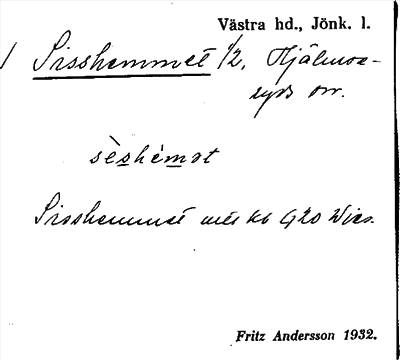 Västra hd., Jönk. l.
Sisshemmet 1/2, Hjälmse-
ryds sn.
sèshémət
Sisshemmet
Fritz Andersson 1932.